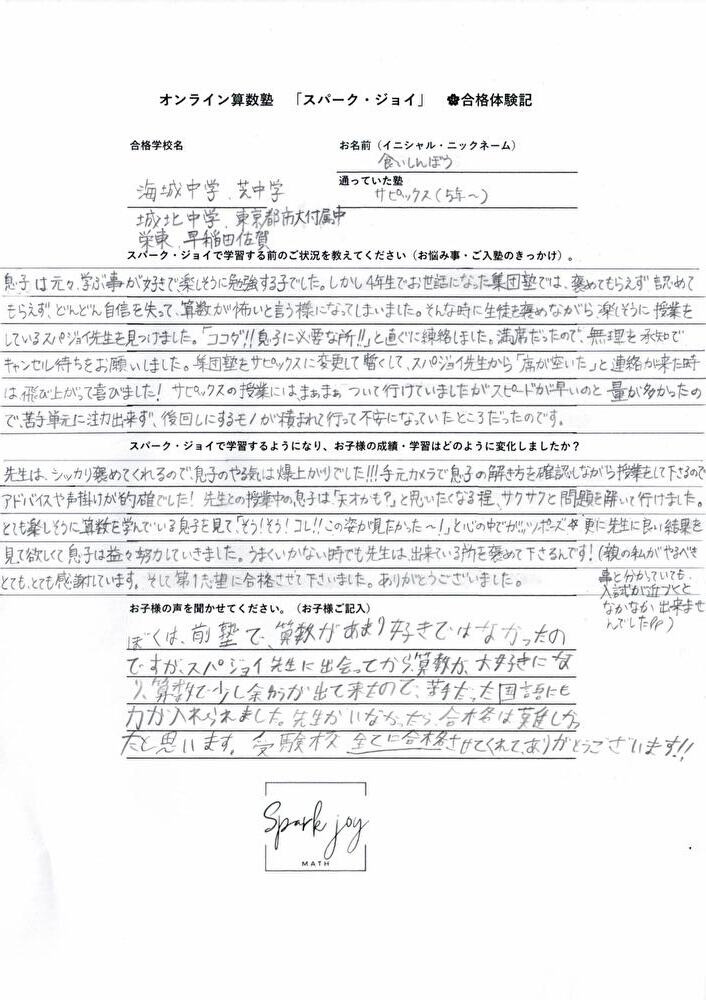 オンライン算数塾 「スパーク・ジョイ」 ✽合格体験記
合格学校名
お名前（イニシャル・ニックネーム）
食いしんぼう
海城中学、芝中学
通っていた塾
サピックス（5年〜）
城北中学、東京都市大付属中
栄東、早稲田佐賀
スパーク・ジョイで学習する前のご状況を教えてください（お悩み事・ご入塾のきっかけ）。
息子は元々、学ぶ事が好きで楽しそうに勉強する子でした。しかし4年生でお世話になった集団塾では、褒めてもらえず認めて
もらえず、どんどん自信を失って、算数が怖いと言う様になってしまいました。そんな時に生徒を褒めながら楽しそうに授業を
しているスパジョイ先生を見つけました。「ココダ!!息子に必要な所!!」と直ぐに連絡しました。満席だったので、無理を承知で
キャンセル待ちをお願いしました。集団塾をサピックスに変更して暫くして、スパジョイ先生から「席が空いた」と連絡が来た時
は飛び上がって喜びました！ サピックスの授業にはまぁまぁついて行けていましたがスピードが早いのと量が多かったの
で、苦手単元に注力出来ず、後回しにするモノが積まれて行って不安になっていたところだったのです。
スパーク・ジョイで学習するようになり、お子様の成績・学習はどのように変化しましたか？
先生は、シッカリ褒めてくれるので、息子のやる気は爆上がりでした!!!手元カメラで息子の解き方を確認しながら授業をして下さるので
アドバイスや声掛けが的確でした！ 先生との授業中の息子は「天才かも？」と思いたくなる程、サクサクと問題を解いて行けました。
とても楽しそうに算数を学んでいる息子を見て「そう！そう！コレ!!この姿が見たかった〜！」と心の中でガッツポーズ☆ 更に先生に良い結果を
見て欲しくて息子は益々努力していきました。うまくいかない時でも先生は、出来ている所を褒めて下さるんです！（親の私がやるべき
事と分かっていても、
入試が近づくと
なかなか出来ませ
んでした）
とても、とても感謝しています。そして第1志望に合格させて下さいました。ありがとうございました。
お子様の声を聞かせてください。（お子様ご記入）
ぼくは、前塾で、算数があまり好きではなかったの
ですが、スパジョイ先生に出会ってから、算数が、大好きにな
り、算数で少し余裕が出て来たので、苦手だった国語にも
力が入れられました。先生がいなかったら、合格は難しかっ
たと思います。受験校全てに合格させてくれて、ありがとうございます!!
Spark joy
MATH